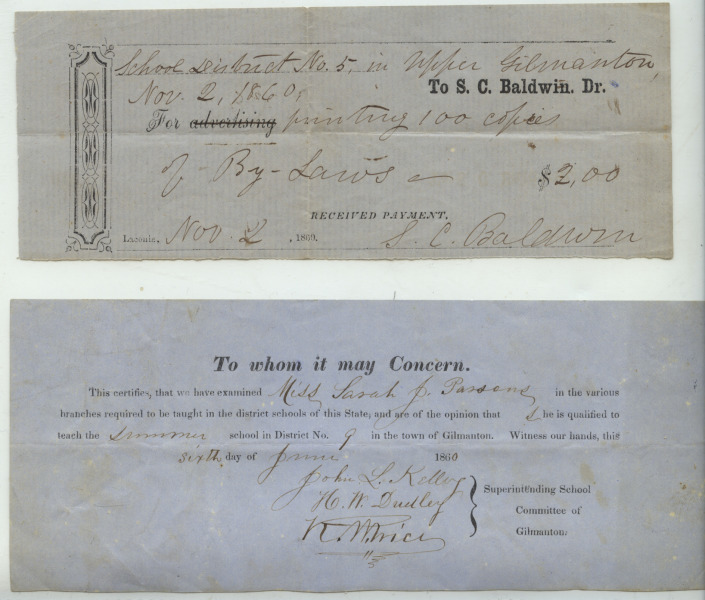 School District No. 5, in Upper Gilmanton,
Nov. 2, 1860, To S. C. Baldwin. Dr.
For advertising printing 100 copies
of By-Laws $2,00
RECEIVED PAYMENT,
Laconia, Nov. 2, 1860. S. C. Baldwin
To whom it may Concern.
This certifies, that we have examined Miss Sarah J. Parsons in the various
branches required to be taught in the district schools of this State, and are of the opinion that she is qualified to
teach the summer school in District No. 9 in the town of Gilmanton. Witness our hands, this
sixth day of June 1860
John L. Kelley
H. W. Dudley
Superintending School
Committee of
Gilmanton.